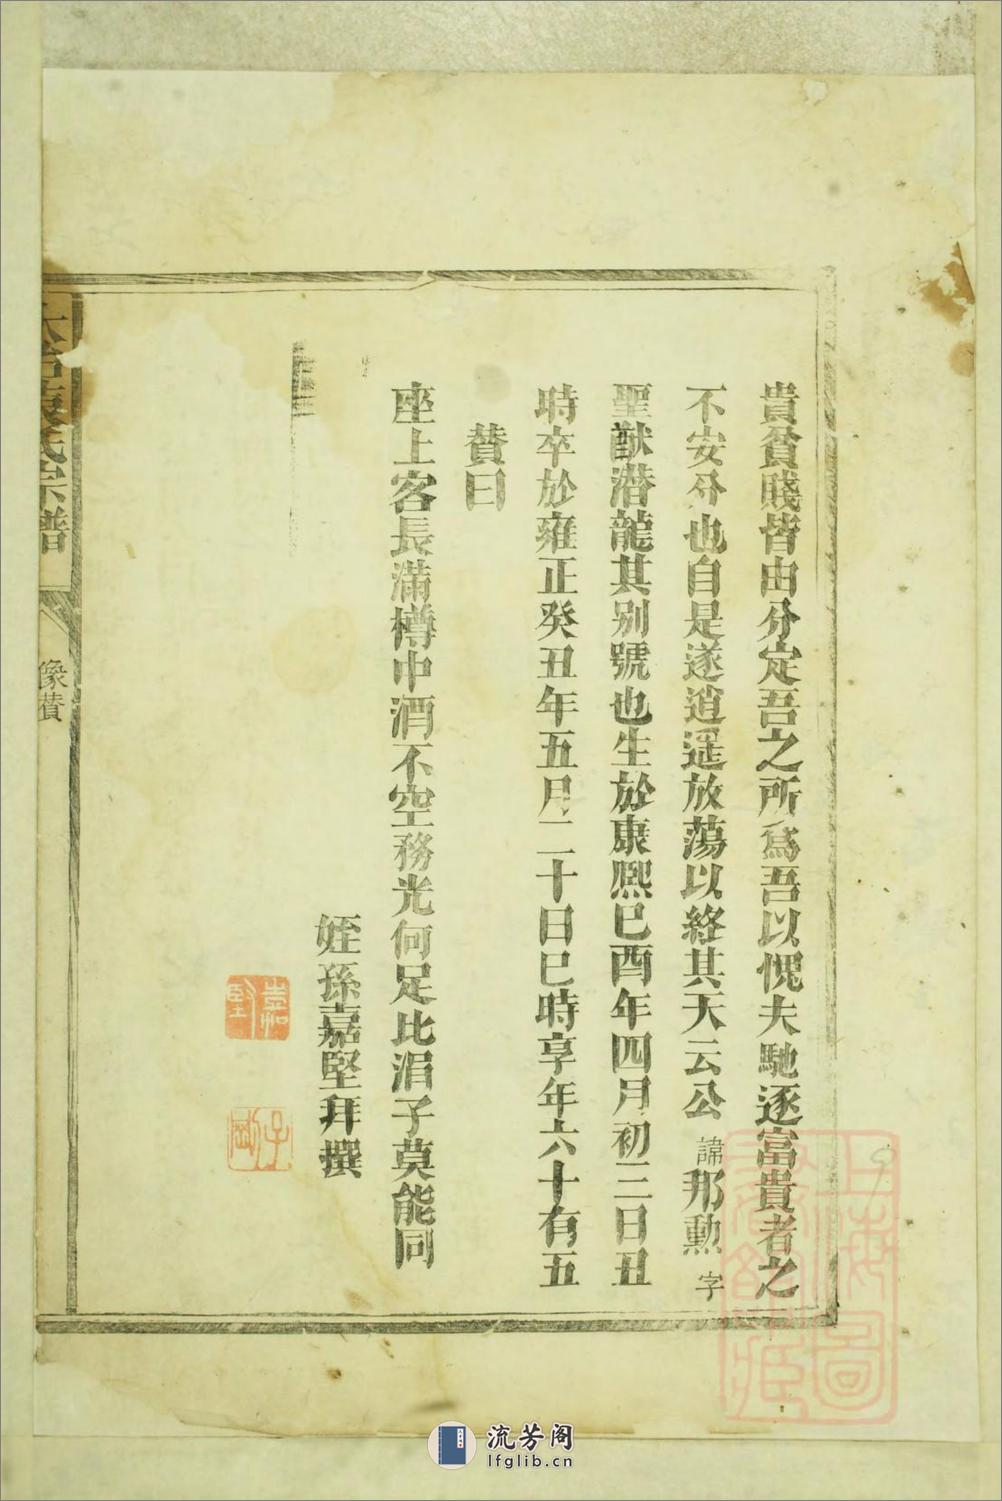 貴貧賤皆由分定吾之所為吾以愧夫馳逐富貴者之
不安分也自是遂逍遥放蕩以終其天云公諱那勲字
聖猷潜龍其别號也生於康熙巳酉年四月初三日丑
時卒於雍正癸丑年五月二十日巳時享年六十有五
賛曰
座上客長滿樽中酒不空務光何足比涓子莫能同
姪孫嘉堅拜撰
嘉堅
氏宗譜
像賛
流芳阁
lfglib.cn